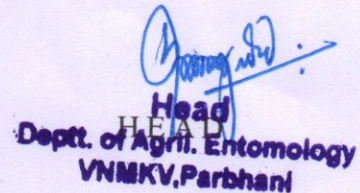 Head
HEAD
Deptt. of Agril. Entomology
VNMKV,Parbhani